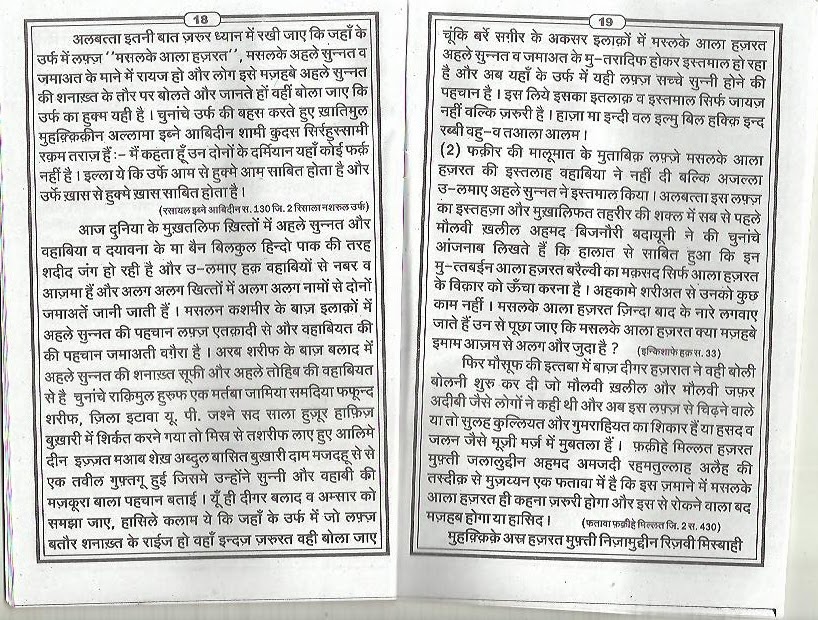 18
अलबत्ता इतनी बात ज़रुर ध्यान में रखी जाए कि जहाँ के
उर्फ में लफ़्ज़ ''मसलके आला हज़रत'', मसलके अहले सुन्नत व
जमाअत के माने में रायज हो और लोग इसे मज़हबे अहले सुन्नत
की शनाख़्त के तौर पर बोलते और जानते हों वहीं बोला जाए कि
उर्फ का हुक्म यही है । चुनांचे उर्फ की बहस करते हुए ख़ातिमुल
मुहक़्क़िक़ीन अल्लामा इब्ने आबिदीन शामी कुदस सिर्रहुस्सामी
रक़म तराज़ हैं :– मैं कहता हूँ उन दोनों के दर्मियान यहाँ कोई फर्क़
नहीं है । इल्ला ये कि उर्फे आम से हुक्मे आम साबित होता है और
उर्फे ख़ास से हुक्मे ख़ास साबित होता है ।
(रसायल इब्ने आबिदीन स. 130 जि. 2 रिसाला नशरुल उर्फ)
आज दुनिया के मुख़तलिफ ख़ित्तों में अहले सुन्नत और
वहाबिया व दयावना के मा बैन बिलकुल हिन्दो पाक की तरह
शदीद जंग हो रही है और उ-लमाए हक़ वहाबियों से नबर व
आज़मा हैं और अलग अलग खित्तों में अलग अलग नामों से दोनों
जमाअतें जानी जाती हैं । मसलन कशमीर के बाज़ इलाक़ों में
अहले सुन्नत की पहचान लफ़्ज़ एतक़ादी से और वहाबियत की
की पहचान जमाअती वग़ैरा है । अरब शरीफ के बाज़ बलाद में
अहले सुन्नत की शनाख़्त सूफी और अहले तोहिब की वहाबियत
से है चुनांचे राक़िमुल हुरुफ एक मर्तबा जामिया समदिया फफून्द
शरीफ, ज़िला इटावा यू. पी. जश्ने सद साला हुज़ूर हाफ़िज़
बुख़ारी में शिर्कत करने गया तो मिस्र से तशरीफ लाए हुए आलिमे
दीन इज़्ज़त मआब शेख़ अब्दुल बासित बुख़ारी दाम मजदहू से से
एक तवील गुफ़्तगू हुई जिसमे उन्होंने सुन्नी और वहाबी की
मज़कूरा बाला पहचान बताई । यूँ ही दीगर बलाद व अम्सार को
समझा जाए, हासिले कलाम ये कि जहाँ के उर्फ में जो लफ़्ज़
बतौर शनाख़्त के राईज हो वहाँ इन्दज़ ज़रुरत वही बोला जाए
19
चूंकि बर्रे सग़ीर के अकसर इलाक़ों में मस्लके आला हज़रत
अहले सुन्नत व जमाअत के मु-तरादिफ होकर इस्तमाल हो रहा
है और अब यहाँ के उर्फ में यही लफ़्ज़ सच्चे सुन्नी होने की
पहचान है । इस लिये इसका इतलाक़ व इस्तमाल सिर्फ जायज़
नहीं वल्कि ज़रुरी है । हाज़ा मा इन्दी वल इल्मु बिल हक्क़ि इन्द
रब्बी वहु-व तआला आलम ।
(2) फक़ीर की मालूमात के मुताबिक़ लफ़्ज़े मसलके आला
हज़रत की इस्तलाह वहाबिया ने नहीं दी बल्कि अजल्ला
उ-लमाए अहले सुन्नत ने इस्तमाल किया । अलबत्ता इस लफ़्ज़
का इस्तहज़ा और मुख़ालिफत तहरीर की शक्ल में सब से पहले
मौलवी ख़लील अहमद बिजनौरी बदायूनी ने की चुनांचे
आंजनाब लिखते हैं कि हालात से साबित हुआ कि इन
मु-त्तबईन आला हज़रत बरैल्वी का मक़सद सिर्फ आला हज़रत
के विक़ार को ऊँचा करना है । अहकामे शरीअत से उनको कुछ
काम नहीं । मसलके आला हज़रत ज़िन्दा बाद के नारे लगवाए
जाते हैं उन से पूछा जाए कि मसलके आला हज़रत क्या मज़हबे
इमाम आज़म से अलग और जुदा है ? (इन्किशाफे हक़ स. 33)
फिर मौसूफ की इत्तबा में बाज़ दीगर हज़रात ने वही बोली
बोलनी शुरु कर दी जो मौलवी ख़लील और मौलवी जफ़र
अदीबी जैसे लोगों ने कही थी और अब इस लफ़्ज़ से चिढ़ने वाले
या तो सुलह कुल्लियत और गुमराहियत का शिकार हैं या हसद व
जलन जैसे मूज़ी मर्ज़ में मुबतला हैं । फ़क़ीहे मिल्लत हज़रत
मुफ़्ती जलालुद्दीन अहमद अमजदी रहमतुल्लाह अलैह की
तस्दीक़ से मुज़य्यन एक फतावा में है कि इस ज़माने में मसलके
आला हज़रत ही कहना ज़रुरी होगा और इस से रोकने वाला बद
मज़हब होगा या हासिद । (फतावा फ़क़ीहे मिल्लत जि. 2 स. 430)
मुहक़्क़िक़े अस्र हज़रत मुफ़्ती निज़ामुद्दीन रिज़वी मिस्बाही